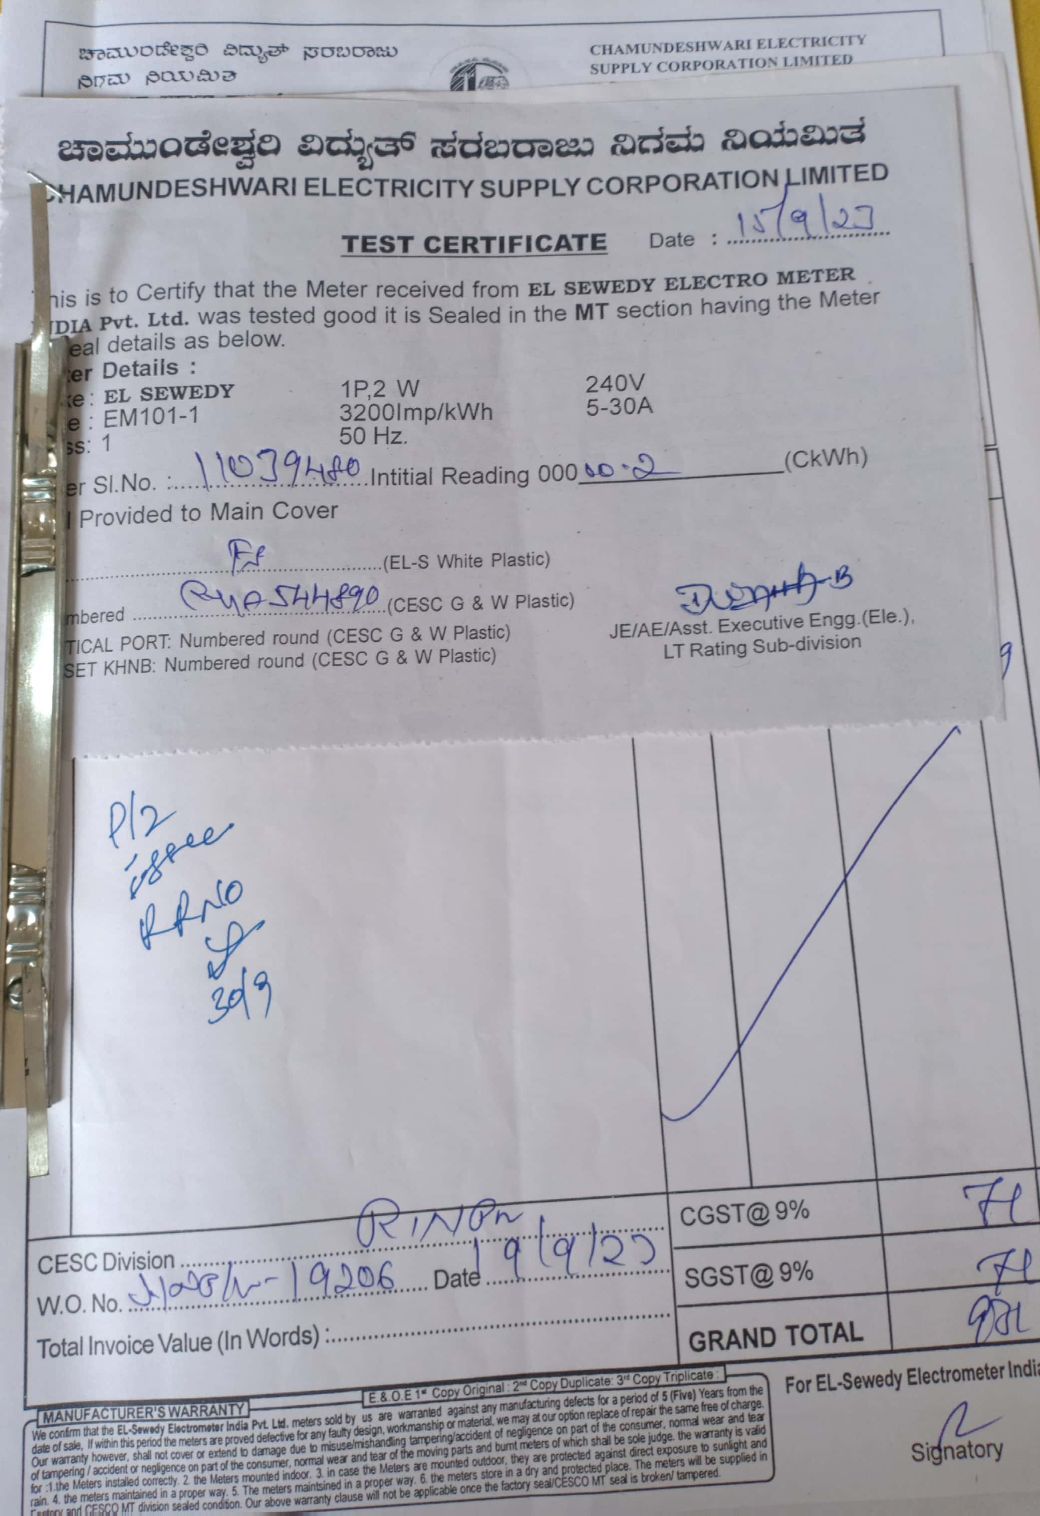 ಚಾಮುಂಡೇಶ್ವರಿ ವಿದ್ಯುತ್ ಸರಬರಾಜು
ನಿಗಮ ನಿಯಮಿತ
CHAMUNDESHWARI ELECTRICITY
SUPPLY CORPORATION LIMITED
ಚಾಮುಂಡೇಶ್ವರಿ ವಿದ್ಯುತ್ ಸರಬರಾಜು ನಿಗಮ ನಿಯಮಿತ
CHAMUNDESHWARI ELECTRICITY SUPPLY CORPORATION LIMITED
TEST CERTIFICATE Date : 15/9/23
his is to Certify that the Meter received from EL SEWEDY ELECTRO METER
DIA Pvt. Ltd. was tested good it is Sealed in the MT section having the Meter
eal details as below.
er Details :
ke : EL SEWEDY 1P,2 W 240V
e : EM101-1 3200Imp/kWh 5-30A
ss: 1 50 Hz.
er Sl.No. : 11039480 Intitial Reading 000 00.2 (CkWh)
l Provided to Main Cover
(EL-S White Plastic)
mbered 544890 (CESC G & W Plastic)
TICAL PORT: Numbered round (CESC G & W Plastic)
SET KHNB: Numbered round (CESC G & W Plastic)
JE/AE/Asst. Executive Engg.(Ele.),
LT Rating Sub-division
P/2
RRNO
30/9
CESC Division
W.O. No. 19206 Date 19/9/23
Total Invoice Value (In Words) :
CGST@ 9% 71
SGST@ 9% 71
GRAND TOTAL 931
E & O.E 1st Copy Original : 2nd Copy Duplicate: 3rd Copy Triplicate :
MANUFACTURER'S WARRANTY
We confirm that the EL-Sewedy Electrometer India Pvt. Ltd. meters sold by us are warranted against any manufacturing defects for a period of 5 (Five) Years from the
date of sale, If within this period the meters are proved defective for any faulty design, workmanship or material, we may at our option replace of repair the same free of charge.
Our warranty however, shall not cover or extend to damage due to misuse/mishandling tampering/accident of negligence on part of the consumer, normal wear and tear
of tampering / accident or negligence on part of the consumer, normal wear and tear of the moving parts and burnt meters of which shall be sole judge. the warranty is valid
for :1.the Meters installed correctly. 2. the Meters mounted indoor. 3. in case the Meters are mounted outdoor, they are protected against direct exposure to sunlight and
rain. 4. the meters maintained in a proper way. 5. The meters maintsined in a proper way. 6. the meters store in a dry and protected place. The meters will be supplied in
Factory and CESCO MT division sealed condition. Our above warranty clause will not be applicable once the factory seal/CESCO MT seal is broken/ tampered.
For EL-Sewedy Electrometer India
Signatory